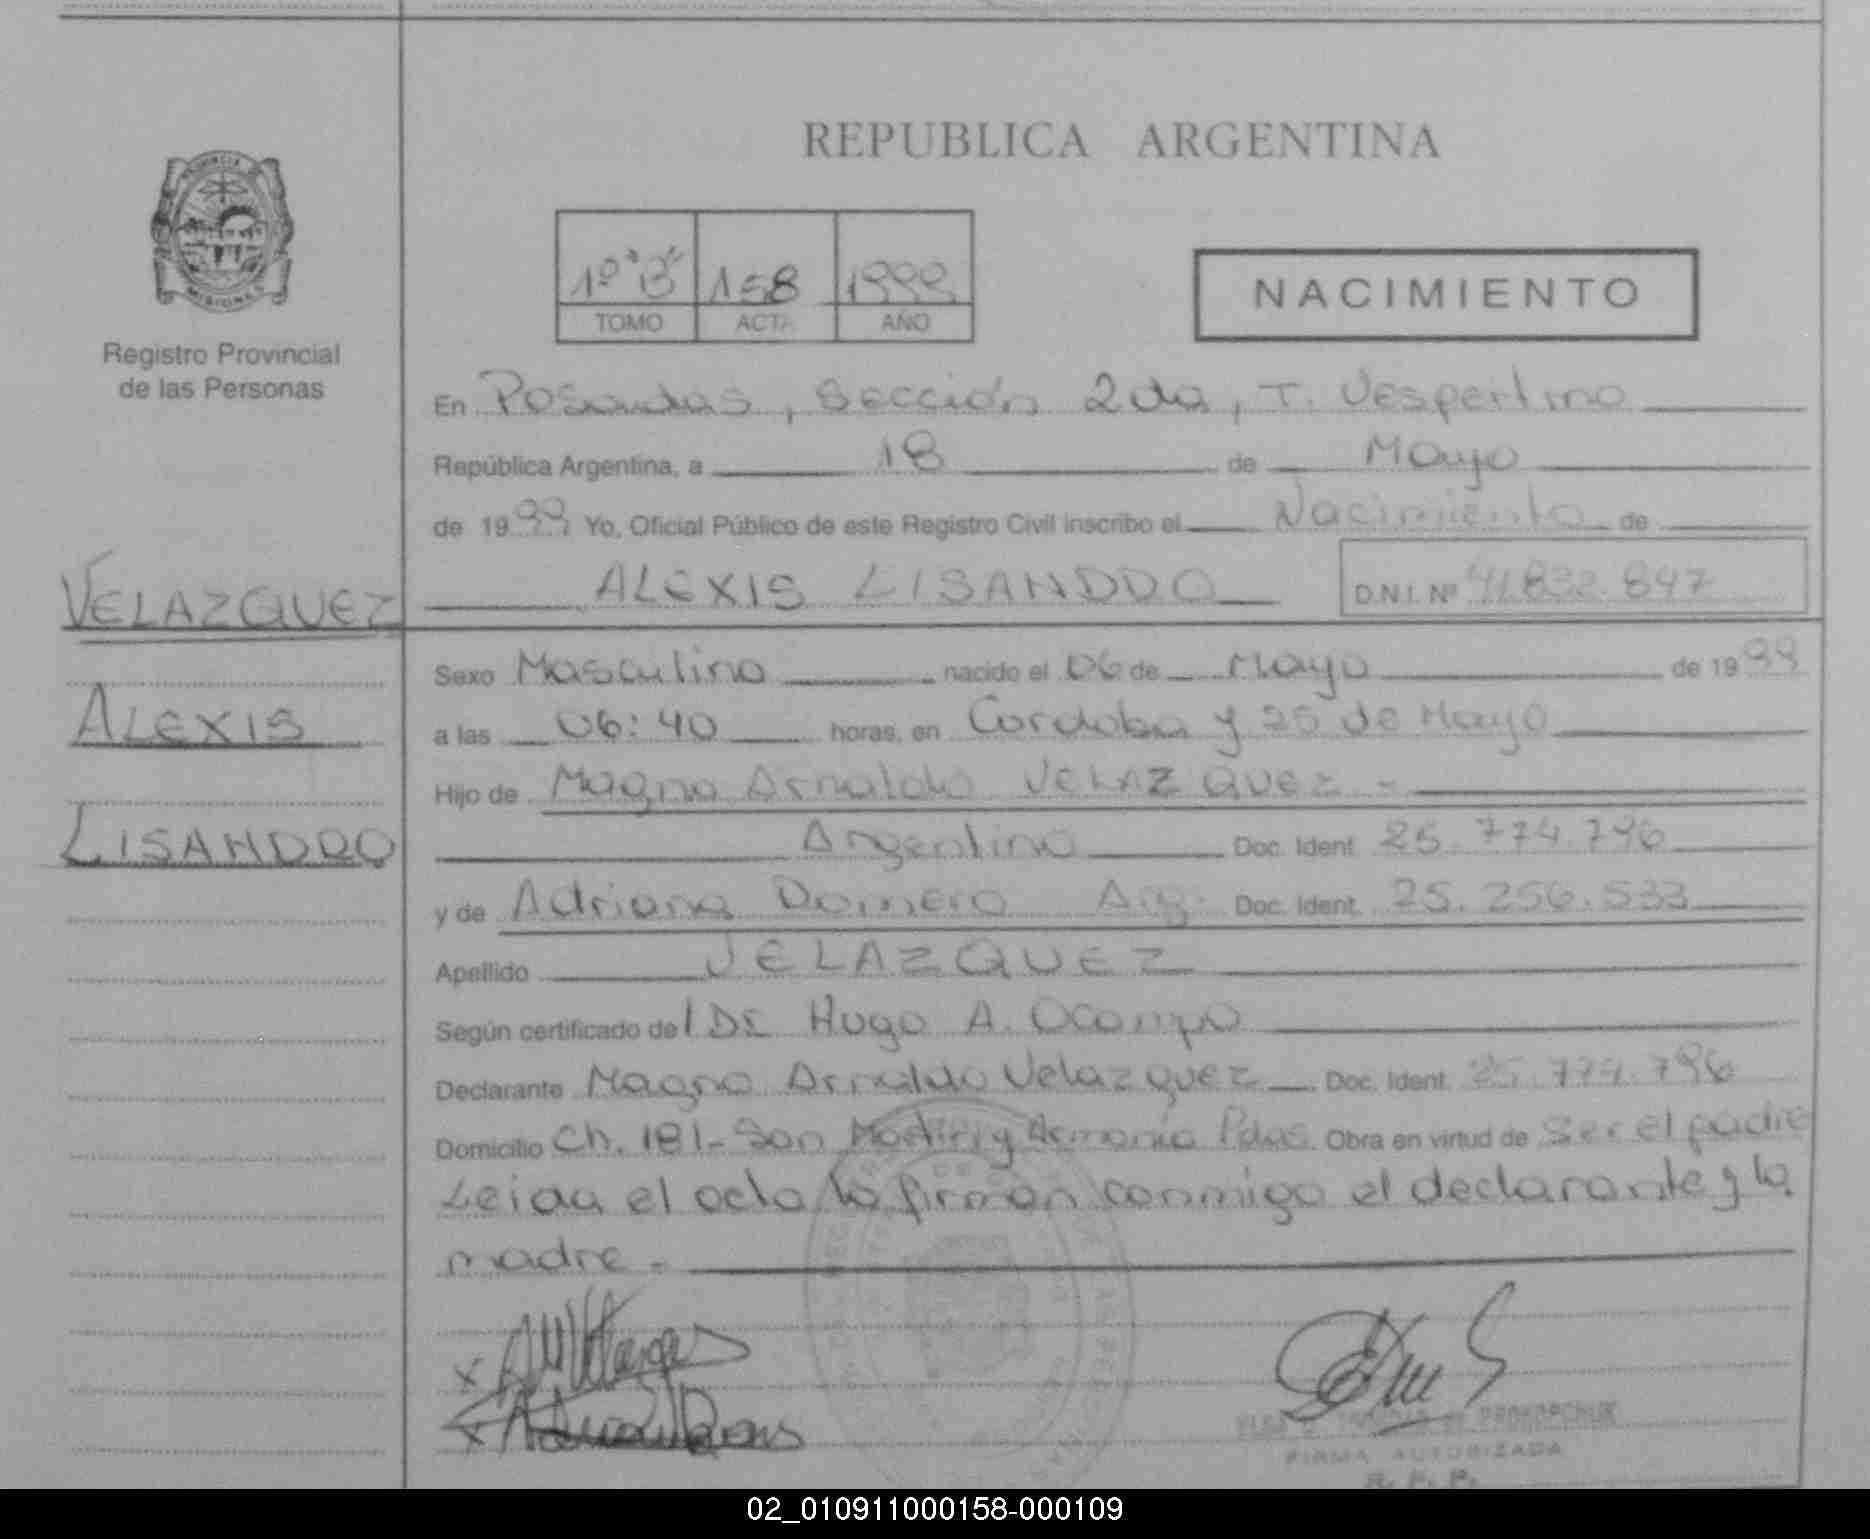 REPUBLICA ARGENTINA
PROVINCIA
MISIONES
Registro Provincial
de las Personas
1º "B" 158 1999
TOMO ACTA AÑO
NACIMIENTO
En Posadas, Sección 2da, T. Vespertino
República Argentina, a 18 de Mayo
de 1999 Yo, Oficial Público de este Registro Civil inscribo el Nacimiento de
ALEXIS LISANDRO D.N.I. Nº 41.832.847
VELAZQUEZ
ALEXIS
LISANDRO
Sexo Masculino nacido el 06 de Mayo de 1999
a las 06:40 horas, en Cordoba y 25 de Mayo
Hijo de Magno Arnaldo VELAZQUEZ -
Argentino Doc. Ident. 25.774.796
y de Adriana Arg. Doc. Ident. 25.256.533
Apellido VELAZQUEZ
Según certificado del Dr Hugo A. Ocampo
Declarante Magno Arnaldo Velazquez Doc. Ident. 25.774.796
Domicilio Ch. 181- San Martin y Armonía Pdas. Obra en virtud de ser el padre
Leida el acta la firman conmigo el declarante y la
madre.-
PROKOPCHUK
FIRMA AUTORIZADA
R. P. P.
02_010911000158-000109